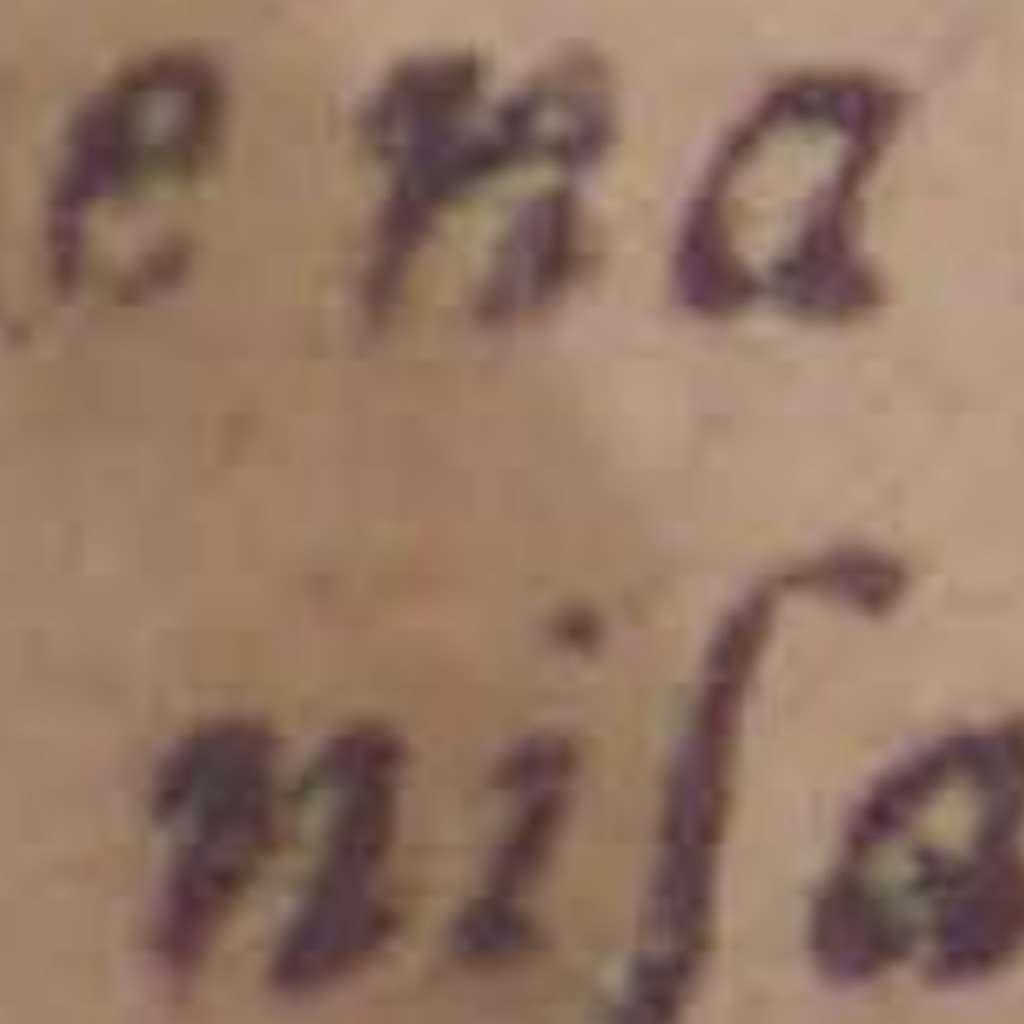 ena
niſa